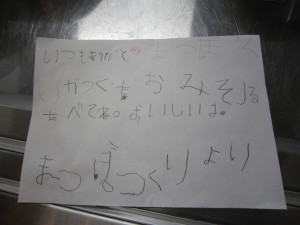 いつもありがと まつぼっく
りがつくった おみそしる
たべてね。おいしいよ。
まつぼっくりより